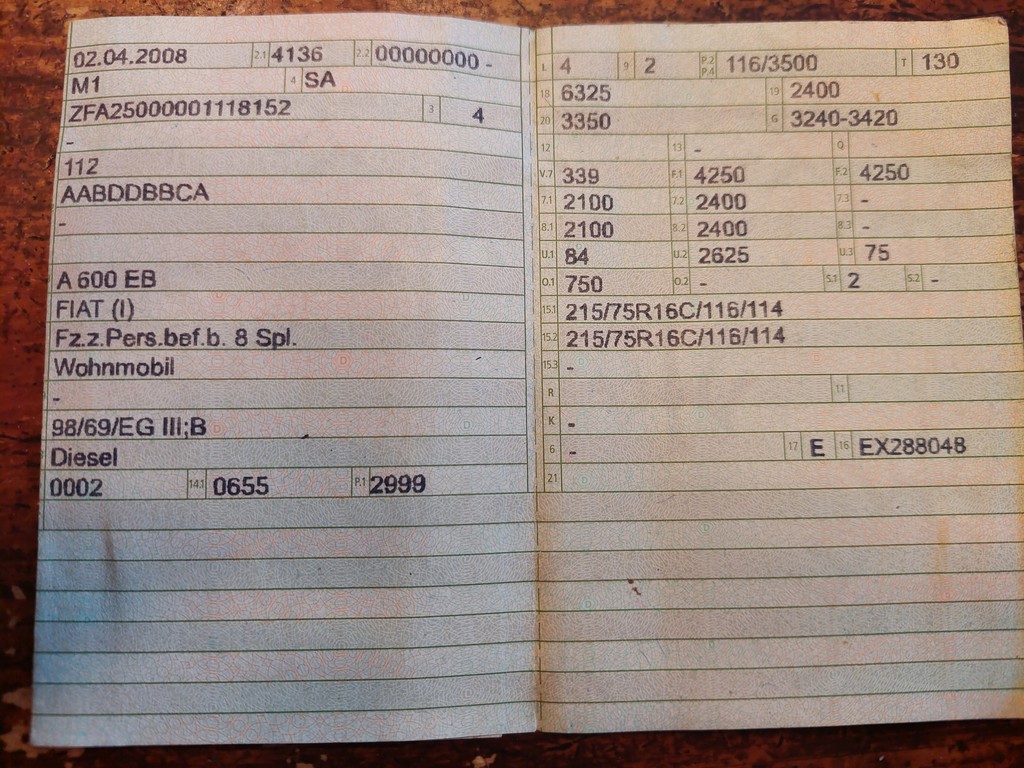 02.04.2008 2.1 4136 2.2 00000000 -
M1 4 SA
ZFA25000001118152 3 4
-
112
AABDDBBCA
-
A 600 EB
FIAT (I)
Fz.z.Pers.bef.b. 8 Spl.
Wohnmobil
-
98/69/EG III;B
Diesel
0002 14.1 0655 P.1 2999
L 4 9 2 P.2 P.4 116/3500 T 130
18 6325 19 2400
20 3350 G 3240-3420
12 13 - Q
V.7 339 F.1 4250 F.2 4250
7.1 2100 7.2 2400 7.3 -
8.1 2100 8.2 2400 8.3 -
U.1 84 U.2 2625 U.3 75
O.1 750 O.2 - S.1 2 S.2 -
15.1 215/75R16C/116/114
15.2 215/75R16C/116/114
15.3 -
R 11
K -
6 - 17 E 16 EX288048
21